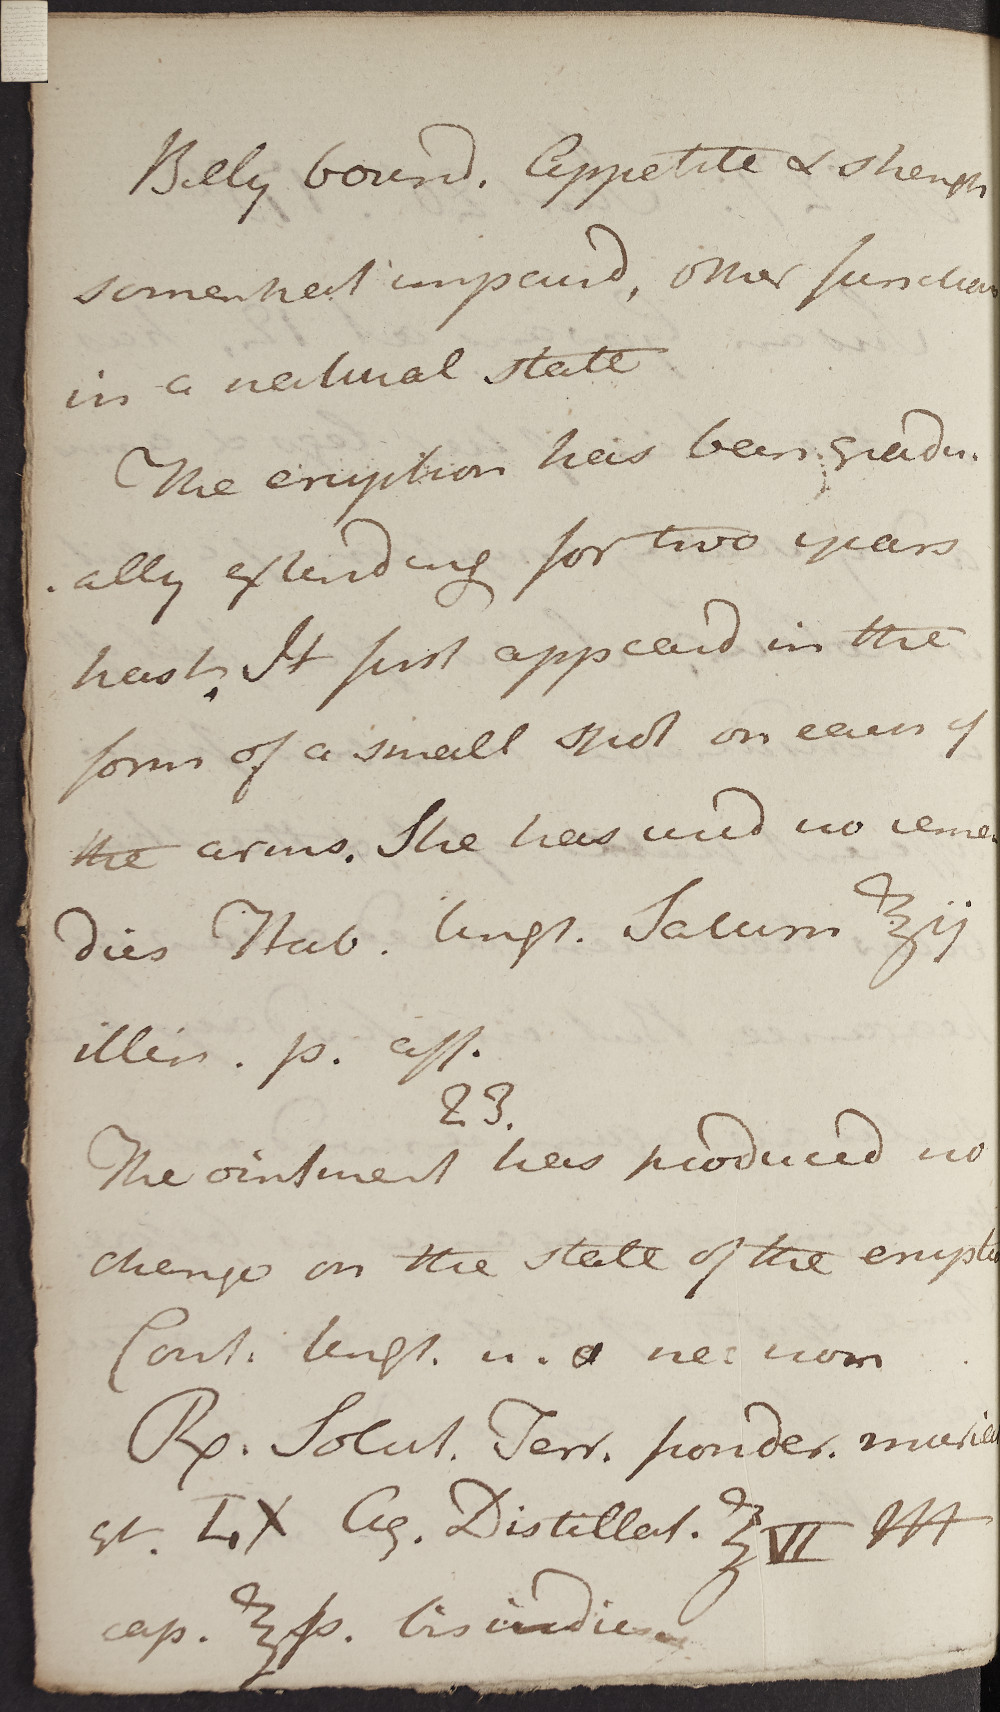 Belly bound. Appetite & strength
somewhat impaird, other functions
in a natural state
The eruption has been gradu-
-ally extending for two years
past. It first appeard in the
form of a small spot on each of
the arms. She has used no reme
dies Hab. Ungt. Saturn ℥ij
illin. p. aff.
23.
The ointment has produced no
change on the state of the eruptio
Cont. Ungt. u. a nec non
Rx. Solut. Terr. ponder. muriat
gt. LX Aq. Distillat. ℥VI M
cap. ℥ß. bis indies